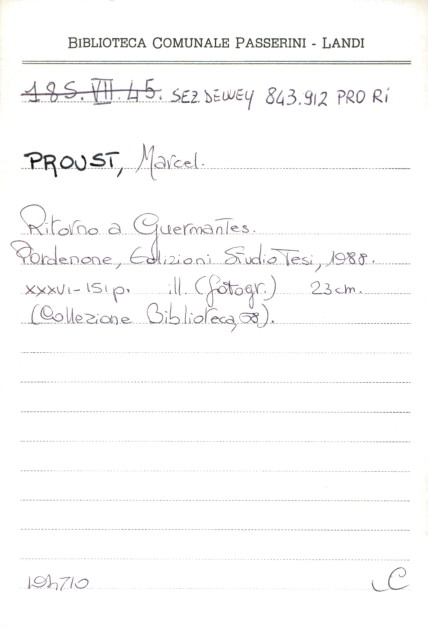 BIBLIOTECA COMUNALE PASSERINI - LANDI
185.VII.45. SEZ DEWEY 843.912 PRO Ri
PROUST, Marcel.
Ritorno a Guermantes.
Pordenone, Edizioni Studio Tesi, 1988.
XXXVI-151 p. ill. (fotogr.) 23 cm.
(Collezione Biblioteca, 58).
194710
C